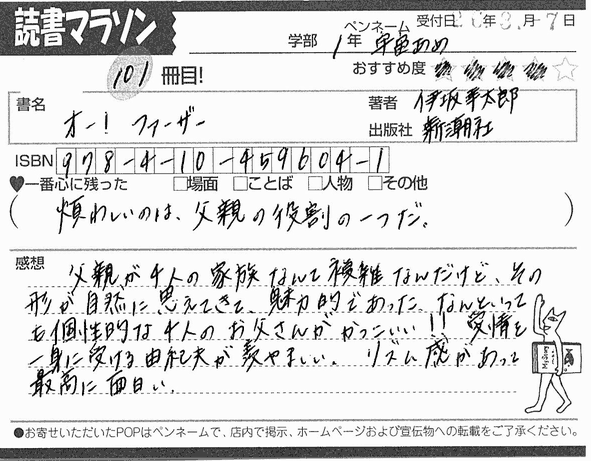 読書マラソン
学部 1年 ペンネーム 宇宙あめ 受付日 年3.月-7日
101冊目!
おすすめ度 ★★★★☆
書名 オー! ファーザー
著者 伊坂幸太郎
出版社 新潮社
ISBN 978-4-10-459604-1
♥一番心に残った □場面 □ことば □人物 □その他
( 煩わしいのは、父親の役割の一つだ。 )
感想 父親が4人の家族なんて複雑なんだけど、その
形が自然に思えてきて、魅力的であった。なんといって
も個性的な4人のお父さんがかっこいい!! 愛情を
一身に受ける由紀夫が羨やましい。 リズム感があって
最高に面白い。
●お寄せいただいたPOPはペンネームで、店内で掲示、ホームページおよび宣伝物への転載をご了承ください。